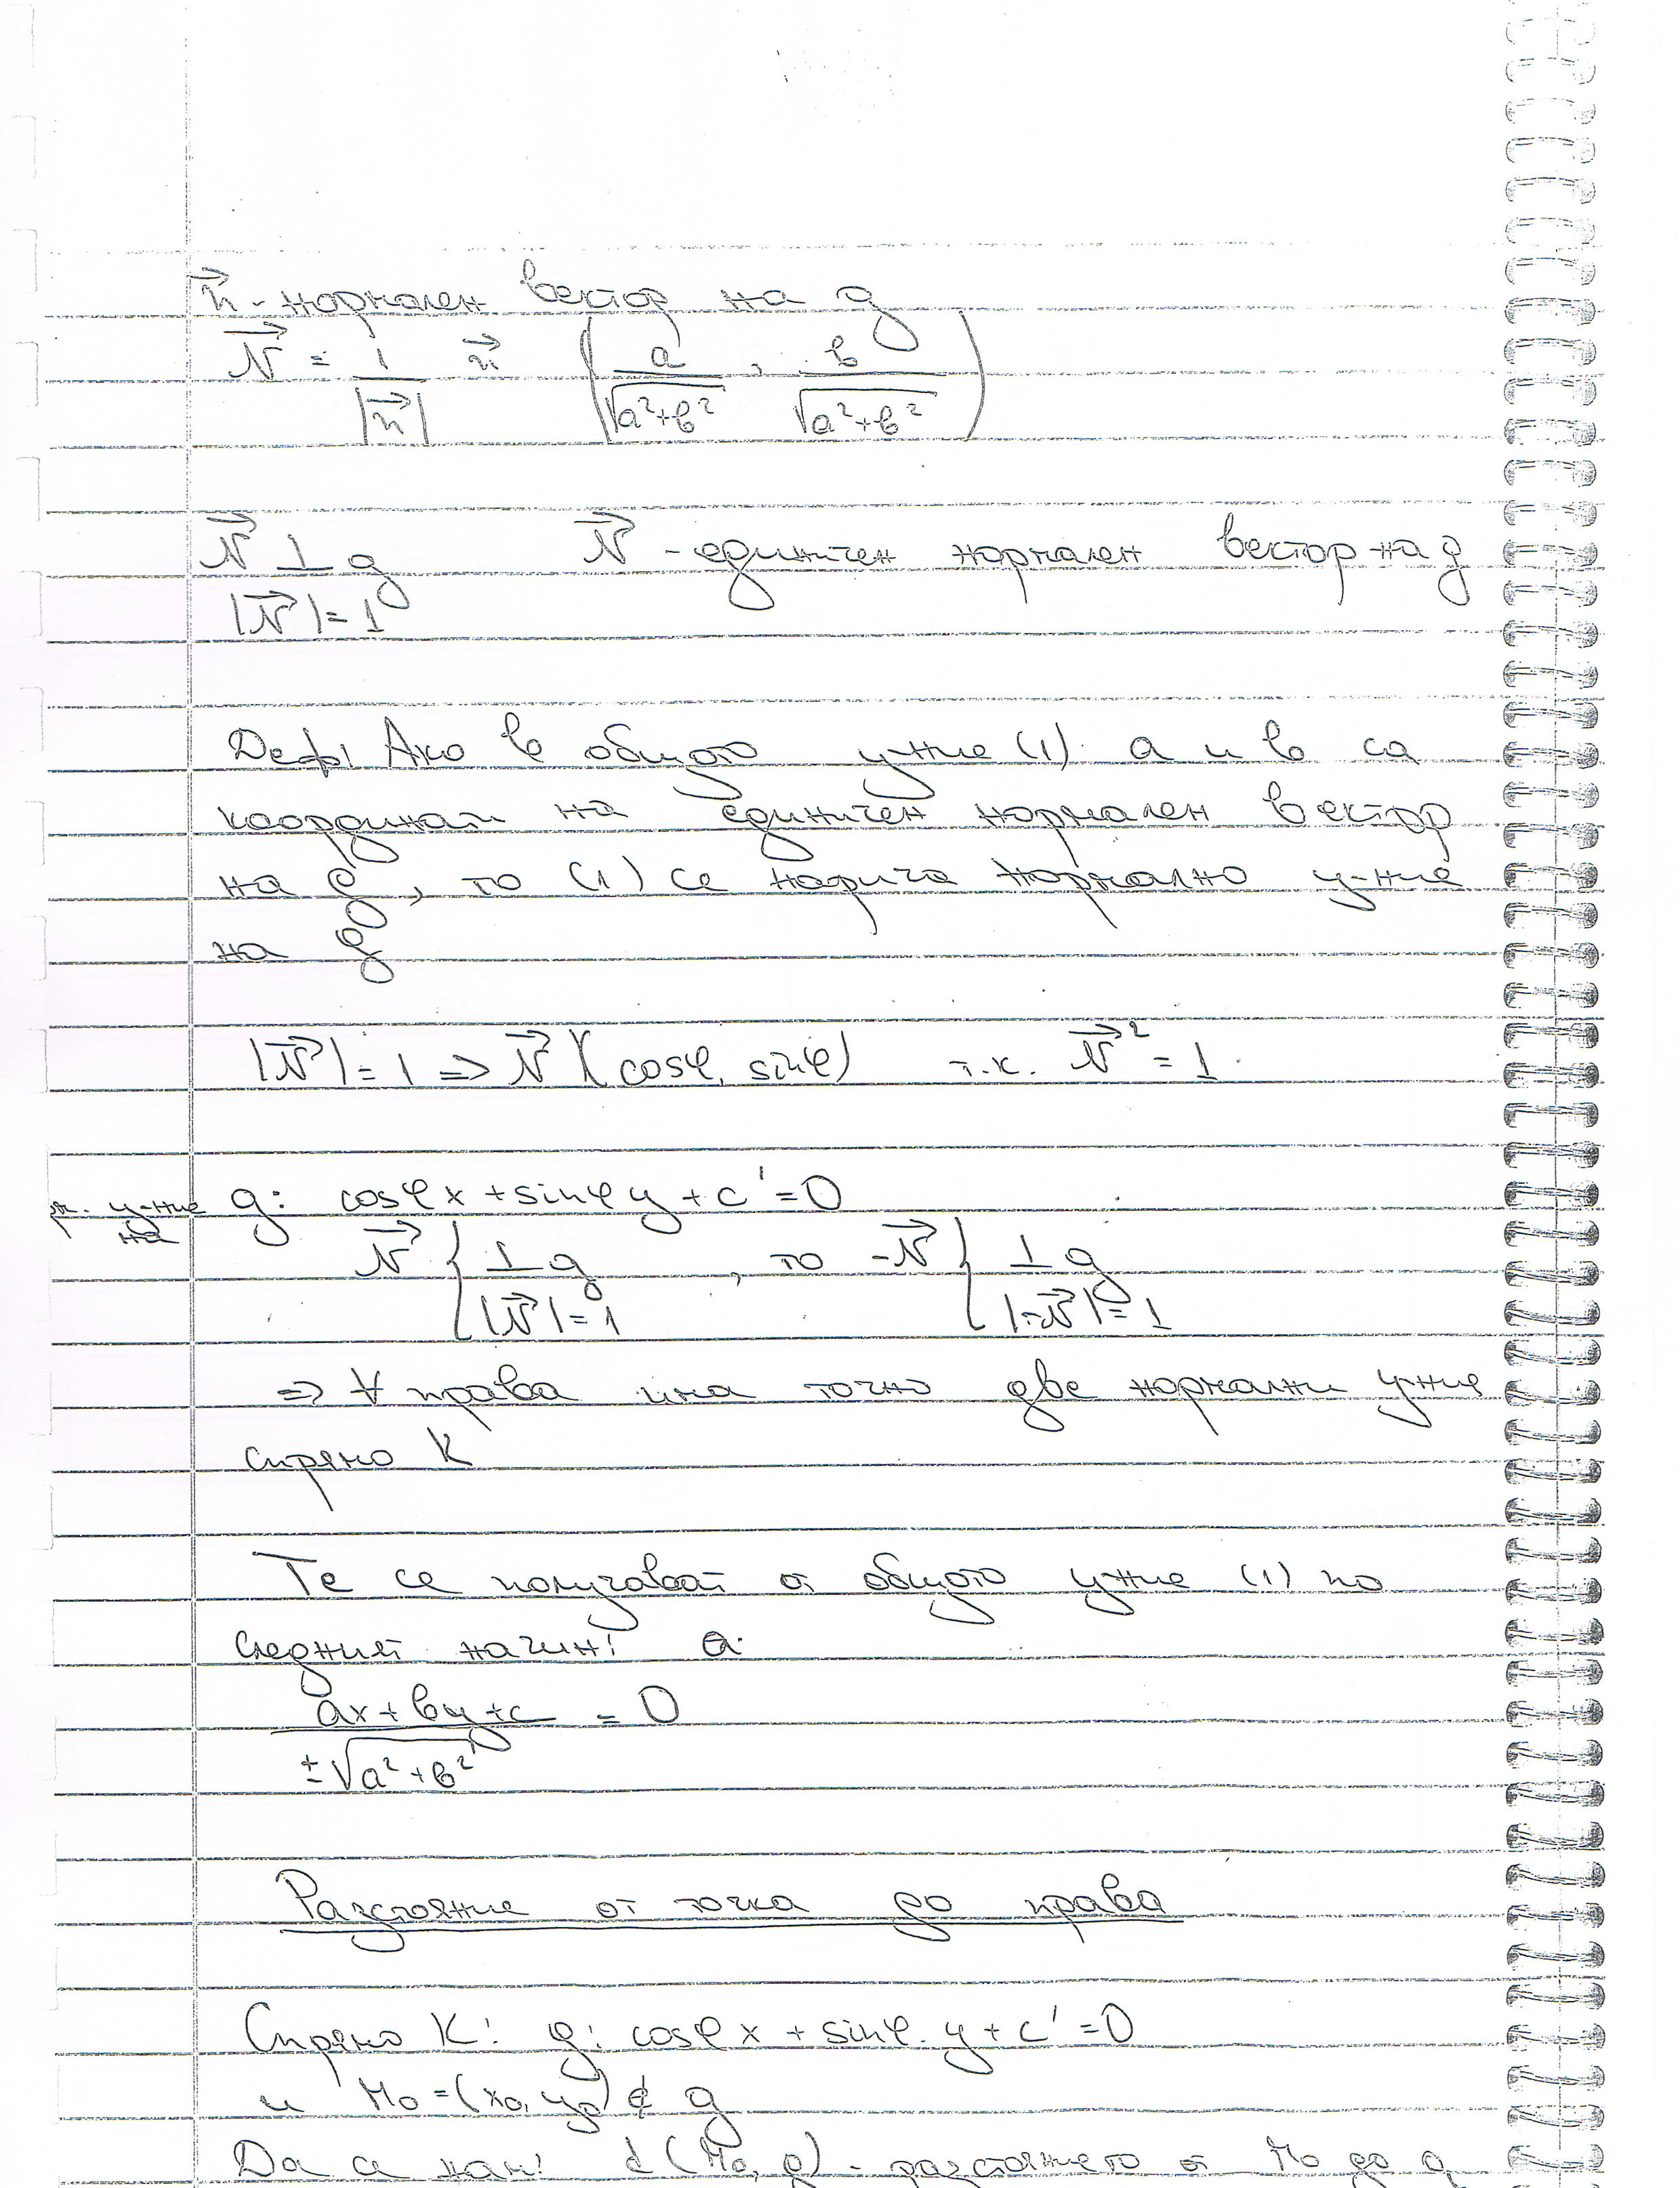 n⃗ - нормален вектор на g
N⃗ = 1/|n⃗| n⃗ (a/√(a²+b²), b/√(a²+b²))
N⃗ ⊥ g N⃗ - единичен нормален вектор на g
|N⃗| = 1
Деф! Ако в общото у-ние (1) a и b са
координати на единичен нормален вектор
на g, то (1) се нарича нормално у-ние
на g
|N⃗| = 1 => N⃗ (cosφ, sinφ) т.к. N⃗² = 1
у-ние на g: cosφ x + sinφ y + c' = 0
N⃗ { ⊥ g , то -N⃗ { ⊥ g
|N⃗| = 1 |-N⃗| = 1
=> ∀ права има точно две нормални у-ния
спрямо K
Те се получават от общото у-ние (1) по
следния начин:
ax + by + c / ±√(a²+b²) = 0
Разстояние от точка до права
Спрямо K: g: cosφ x + sinφ . y + c' = 0
и M₀ = (x₀, y₀) ∉ g
Да се нам! d (M₀, g) - разстоянието от M₀ до g